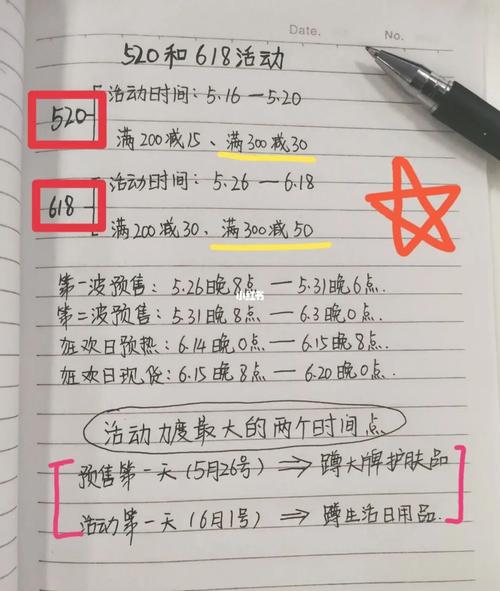 Date.
No.
520和618活动
520
活动时间：5.16—5.20
满200减15、满300减30
618
活动时间：5.26—6.18
满200减30、满300减50
第一波预售：5.26晚8点—5.31晚6点.
小红书
第二波预售：5.31晚8点—6.3晚0点.
狂欢日预热：6.14晚0点—6.15晚8点.
狂欢日现货：6.15晚8点—6.20晚0点.
活动力度最大的两个时间点
预售第一天（5月26号）⇒蹲大牌护肤品
活动第一天（6月1号）⇒蹲生活日用品.